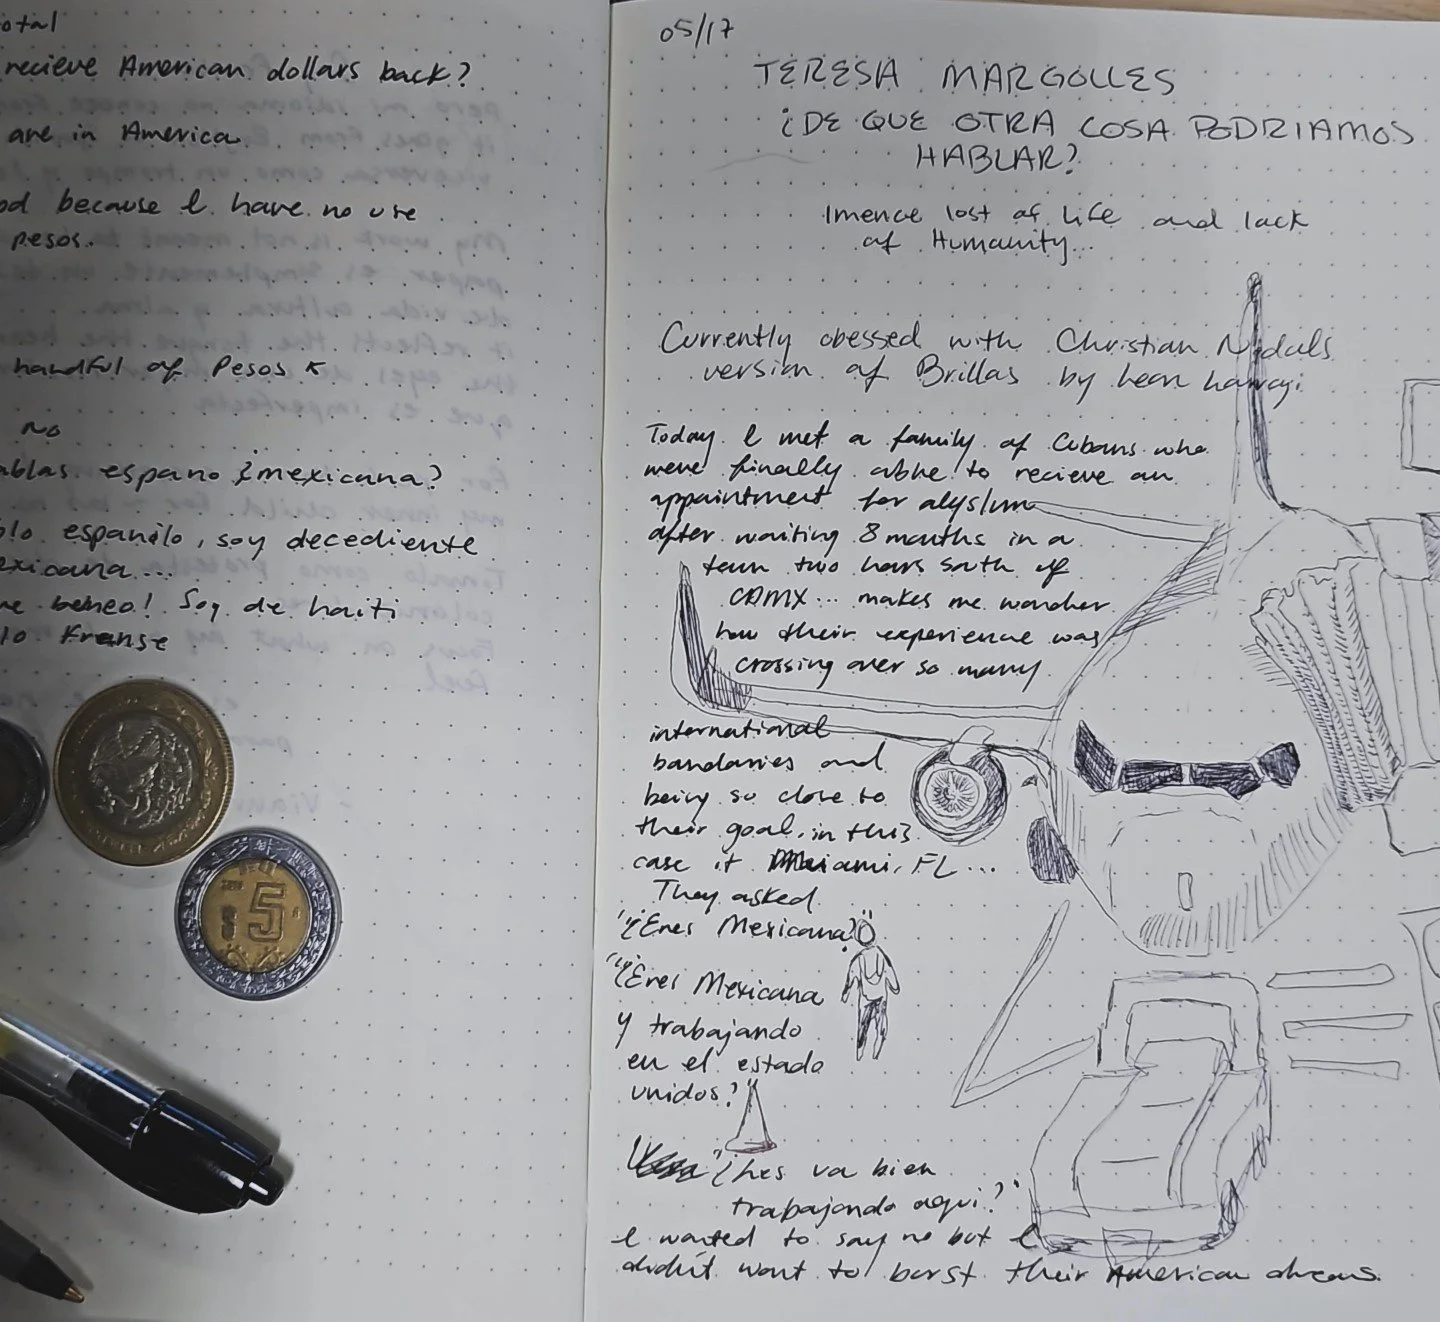 otal
recieve American dollars back?
are in America
od because I have no use
pesos.
handful of Pesos K
no
ablas espano ¿mexicana?
lo espanilo, soy decediente
exicana...
ue beneo! Soy de haiti
lo Franse
5
05/17
TERESA MARGOLLES
¿DE QUE OTRA COSA PODRIAMOS
HABLAR?
Imence lost of life and lack
of Humanity...
Currently obessed with Christian Nodals
version of Brillas by
Today I met a family of Cubans who
were finally able to recieve an
appointment for
after waiting 8 months in a
town two hours south of
CDMX... makes me wonder
how their experience was
crossing over so many
international
bandaries and
being so close to
their goal, in this
case it Miami, FL...
They asked
"¿Eres Mexicana?"
"¿Eres Mexicana
y trabajando
en el estado
unidos?"
"¿Les va bien
trabajando aqui?"
I wanted to say no but I
didn't want to burst their American dreams.